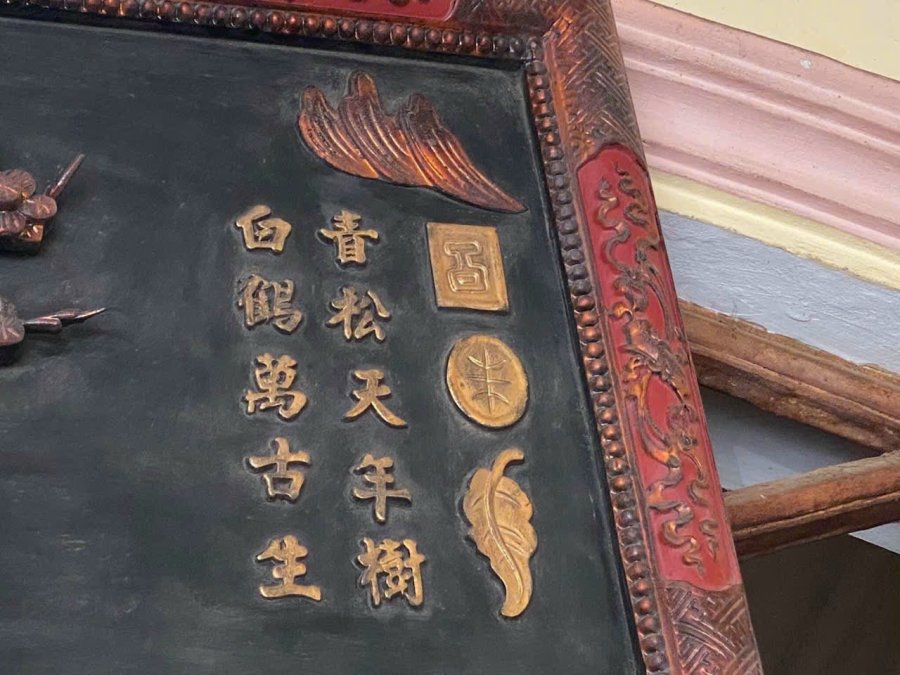 青松天年樹
白鶴萬古生